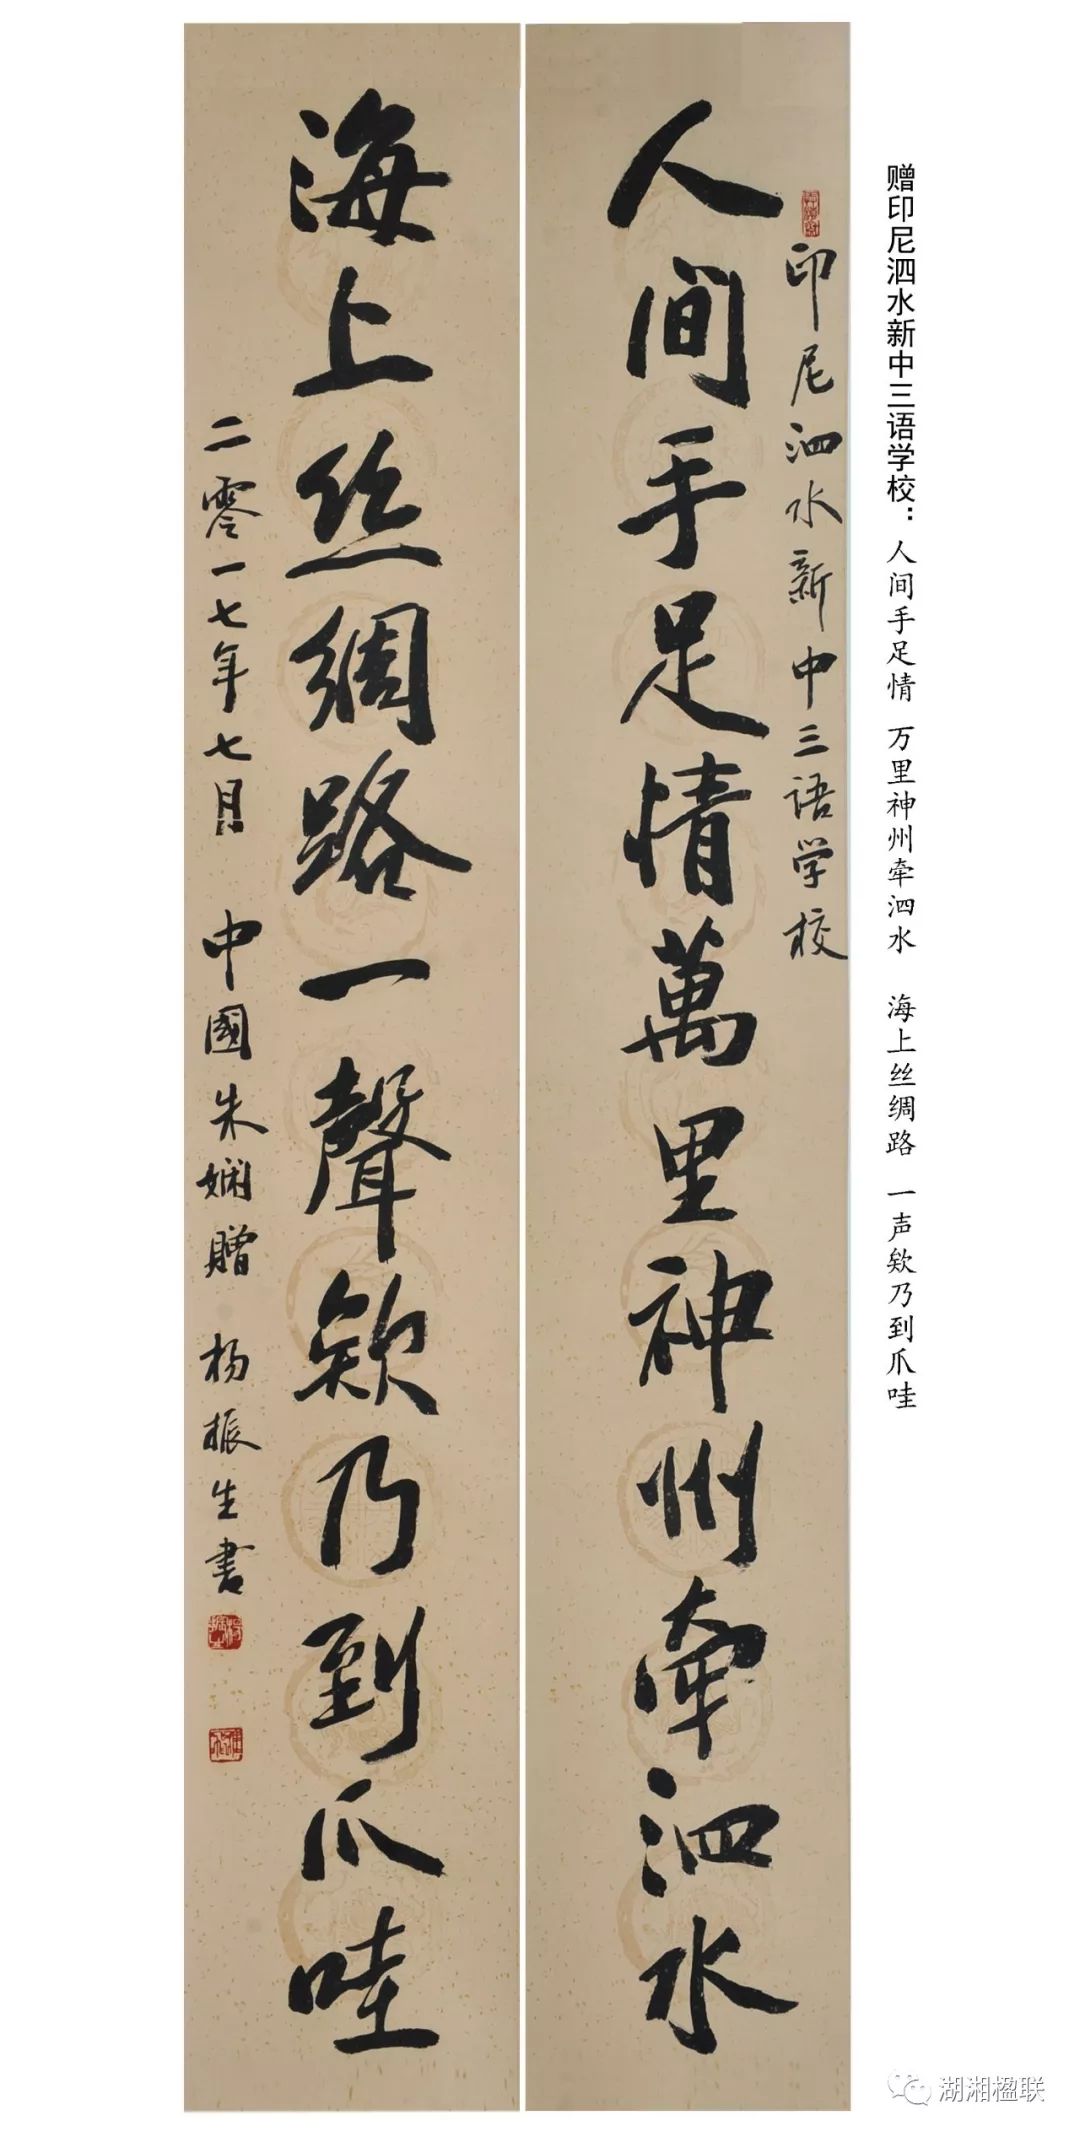 赠印尼泗水新中三语学校：人间手足情 万里神州牵泗水 海上丝绸路 一声欸乃到爪哇
印尼泗水新中三语学校
人间手足情萬里神州牵泗水
海上丝绸路一聲欸乃到爪哇
二零一七年七月 中國朱娴贈 杨振生書
湖湘楹联